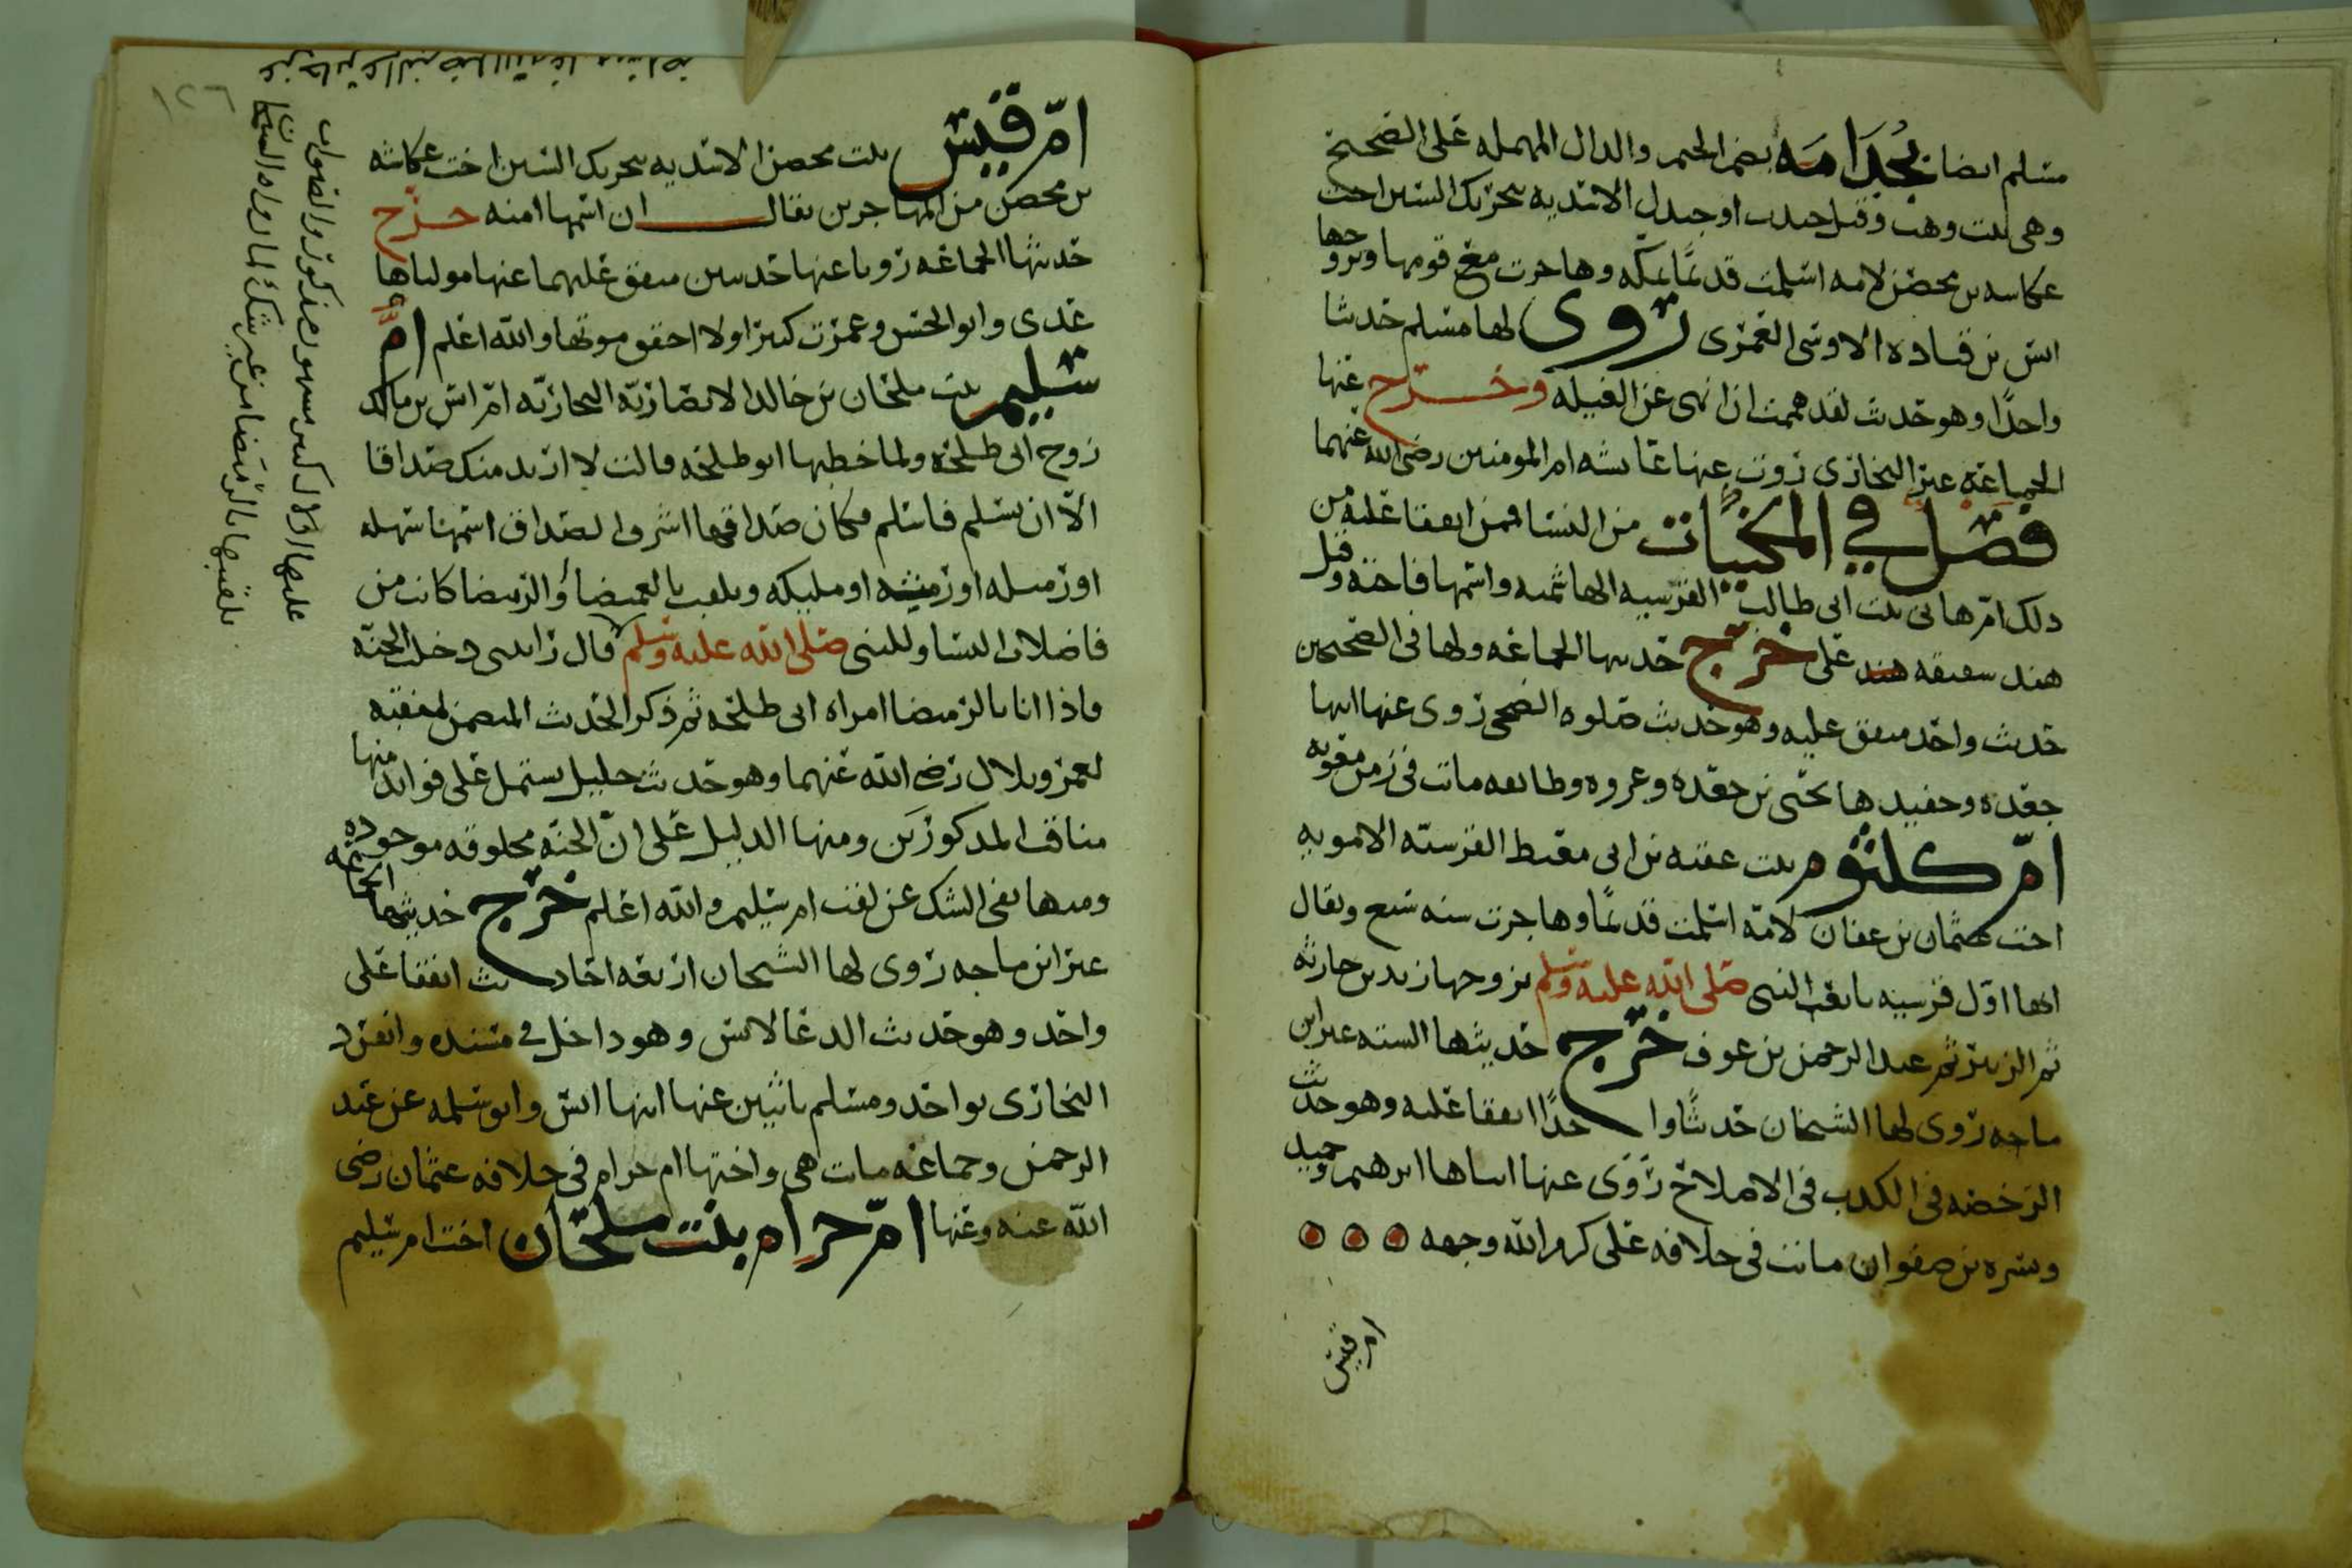 مسلم ايضا جُدَامَه بضم الجيم والدال المهمله على الصحيح
وهي بنت وهب وقيل جندب او جندل الاسديه بتحريك السين اخت
عكاشه بن محصن لامه اسلمت قديمًا بمكه وهاجرت مع قومها وتزوجها
انس بن قتاده الاوسي العمري روى لها مسلم حديثا
واحدًا وهو حديث لقد هممت ان انهى عن الغيله وخرج عنها
الجماعة غير البخاري روت عنها عائشه ام المومنين رضي الله عنهما
فصل في المكنيات من النسا فمن اتفقا عليه من
ذلك امّ هاني بنت ابي طالب القرشيه الهاشميه واسمها فاخته وقيل
هند شقيقه علي خرّج حديثها الجماعه ولها في الصحيحين
حديث واحد متفق عليه وهو حديث صلوه الضحى روى عنها ابنها
جعده وحفيدها يحيى بن جعده وعروه وطائفه ماتت في زمن معويه
امّ كلثوم بنت عقبه بن ابي معيط القرشيّه الامويه
اخت عثمان بن عفان لامّه اسلمت قديمًا وهاجرت سنه سبع ويقال
انها اوّل قرشيه بايعت النبي صلى الله عليه وسلم تزوجها زيد بن حارثه
ثم الزبير ثم عبد الرحمن بن عوف خرّج حديثها السته غير ابن
ماجه روى لها الشيخان حديثًا واحدًا اتفقا عليه وهو حديث
الرخصه في الكذب في الاصلاح رَوَى عنها ابناها ابرهيم وحميد
وبسره بن صفوان ماتت في خلافه علي كرم الله وجهه
ام قيس
امّ قيس بنت محصن الاسديه بتحريك السين اخت عكاشه
بن محصن من المهاجرين يقال ان اسمها امنه خرّج
حديثها الجماعه رويا عنها حديثين متفق عليهما عنها مولياها
عدي وابو الحسن وعمرت كثيرا ولا احقق موتها والله اعلم امُّ
سليم بنت ملحان بن خالد الانصاريّه النجاريّه امّ انس بن مالك
زوج ابي طلحه ولما خطبها ابو طلحه قالت لا اريد منك صداقا
الّا ان تسلم فاسلم فكان صداقها اشرف الصداق اسمها سهله
او رميله او رميثه او مليكه ويلقب بالغميضاء والرميصا كانت من
فاضلات النسا وللنبي صلى الله عليه وسلم قال رايتني دخلت الجنّه
فاذا انا بالرميصا امراه ابي طلحه ثم ذكر الحديث المتضمن لمنقبه
لعمر وبلال رضي الله عنهما وهو حديث جليل يشتمل على فوائد منها
مناقب المذكورَين ومنها الدليل على انّ الجنّه مخلوقه موجوده
ومنها نفي الشك عن لقب ام سليم والله اعلم خرّج حديثها الجماعه
غير ابن ماجه روى لها الشيخان اربعه احاديث اتفقا على
واحد وهو حديث الدعا لانس وهو داخل في مسنده وانفرد
البخاري بواحد ومسلم باثنين عنها ابنها انس وابو سلمه بن عبد
الرحمن وجماعه ماتت هي واختها ام حرام في خلافه عثمان رضي
الله عنه وعنها امّ حرام بنت ملحان اخت ام سليم